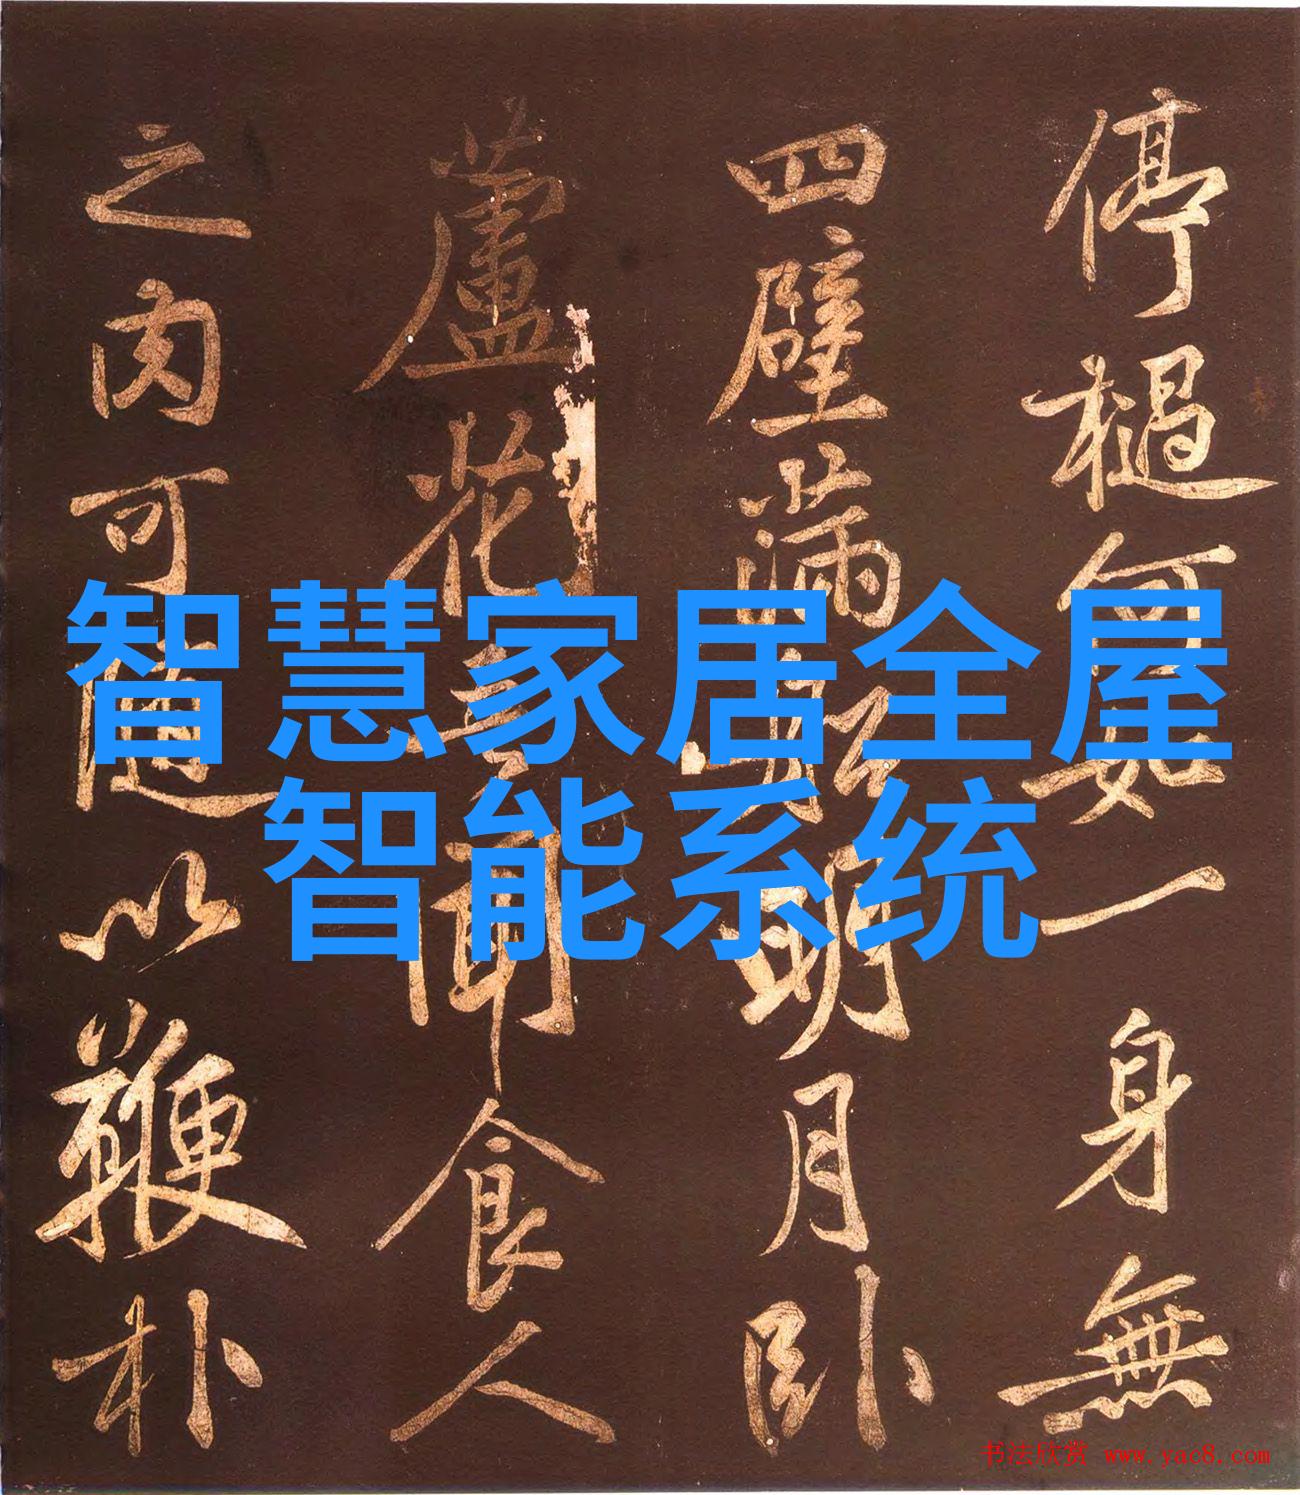 智慧家居全屋
智能系统
停檛何如一身無
四壁滿船明月卧
蘆花吾聞食人
之肉可随以鞭朴
书法欣赏 www.yac8.com